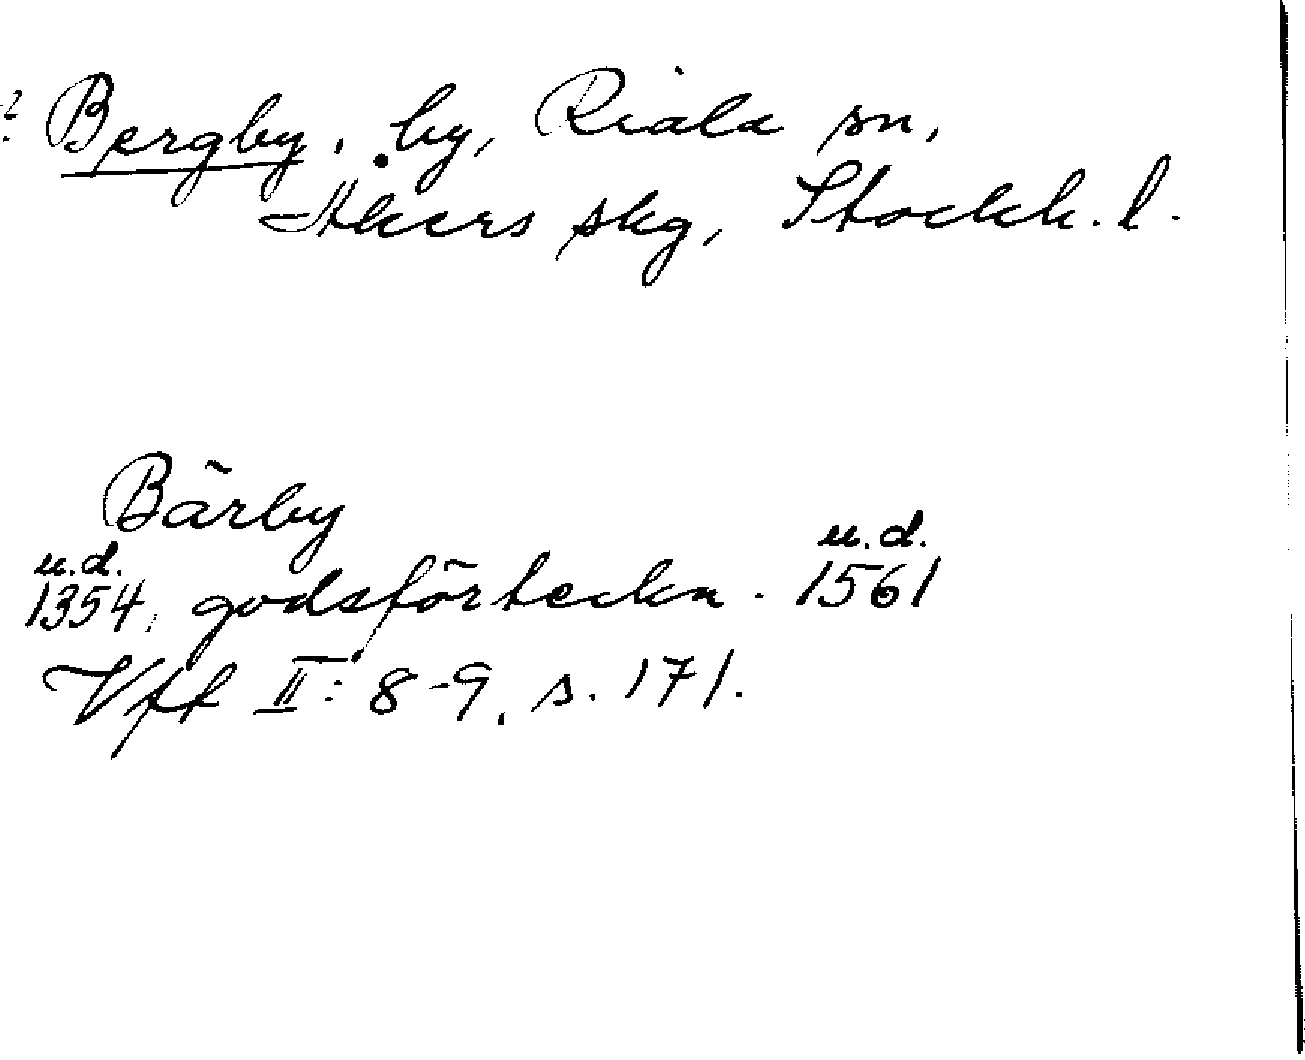 ? Bergby, by, Riala sn,
Åkers skg, Stockh. l.
Bärby
u.d. u.d.
1354, godsförteckn. 1561
Vff II: 8-9, s. 171.